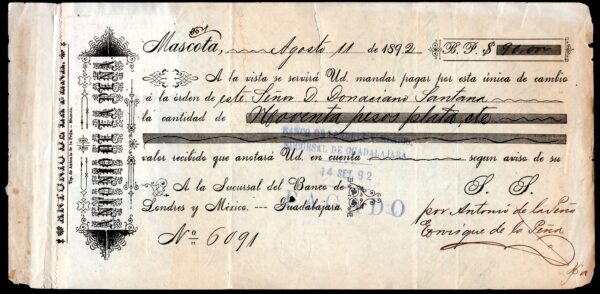 Mascota, Agosto 11 de 1892 B. P. $ 90.00
A la vista se servirá Ud. mandar pagar por esta única de cambio
á la órden de este Señor D. Donaciano Santana
la cantidad de Noventa pesos plata, cto
BANCO DE
SUCURSAL DE GUADALAJARA
valor recibido que anotará Ud. en cuenta segun aviso de su
14 SET. 92
A la Sucursal del Banco de S. S.
Londres y México. --- Guadalajara.
PAGADO
por Antonio de la Peña
Nº 6091 Enrique de la Peña
ANTONIO DE LA PEÑA
ANTONIO DE LA PEÑA